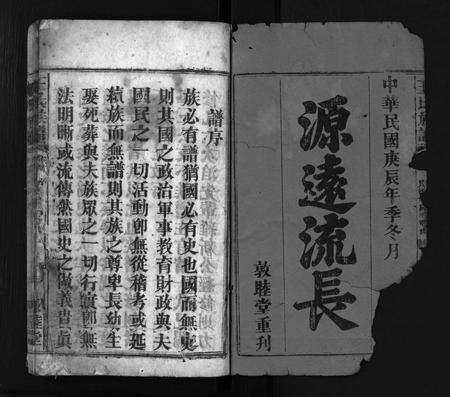 中華民國庚辰年季冬月
源遠流長
敦睦堂重刊
譜序
族必有譜猶國必有史也國而無史
則其國之政治軍事教育財政與夫
國民之一切活動卽無從稽考或延
續族而無譜則其族之尊卑長幼生
娶死葬與夫族眾之一切行實卽無
法明晰或流傳然國史之傳義貴眞